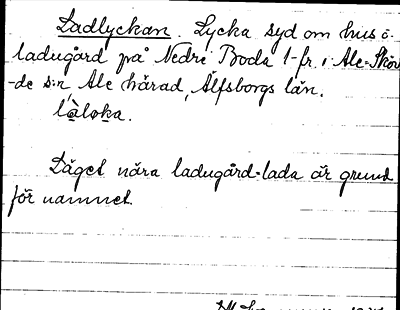 Ladlyckan. Lycka syd om hus o.
ladugård på Nedre Boda 1-fr. i Ale-Sköv
-de s:n, Ale härad, Älfsborgs län.
Läget nära ladugård-lada är grund
för namnet.